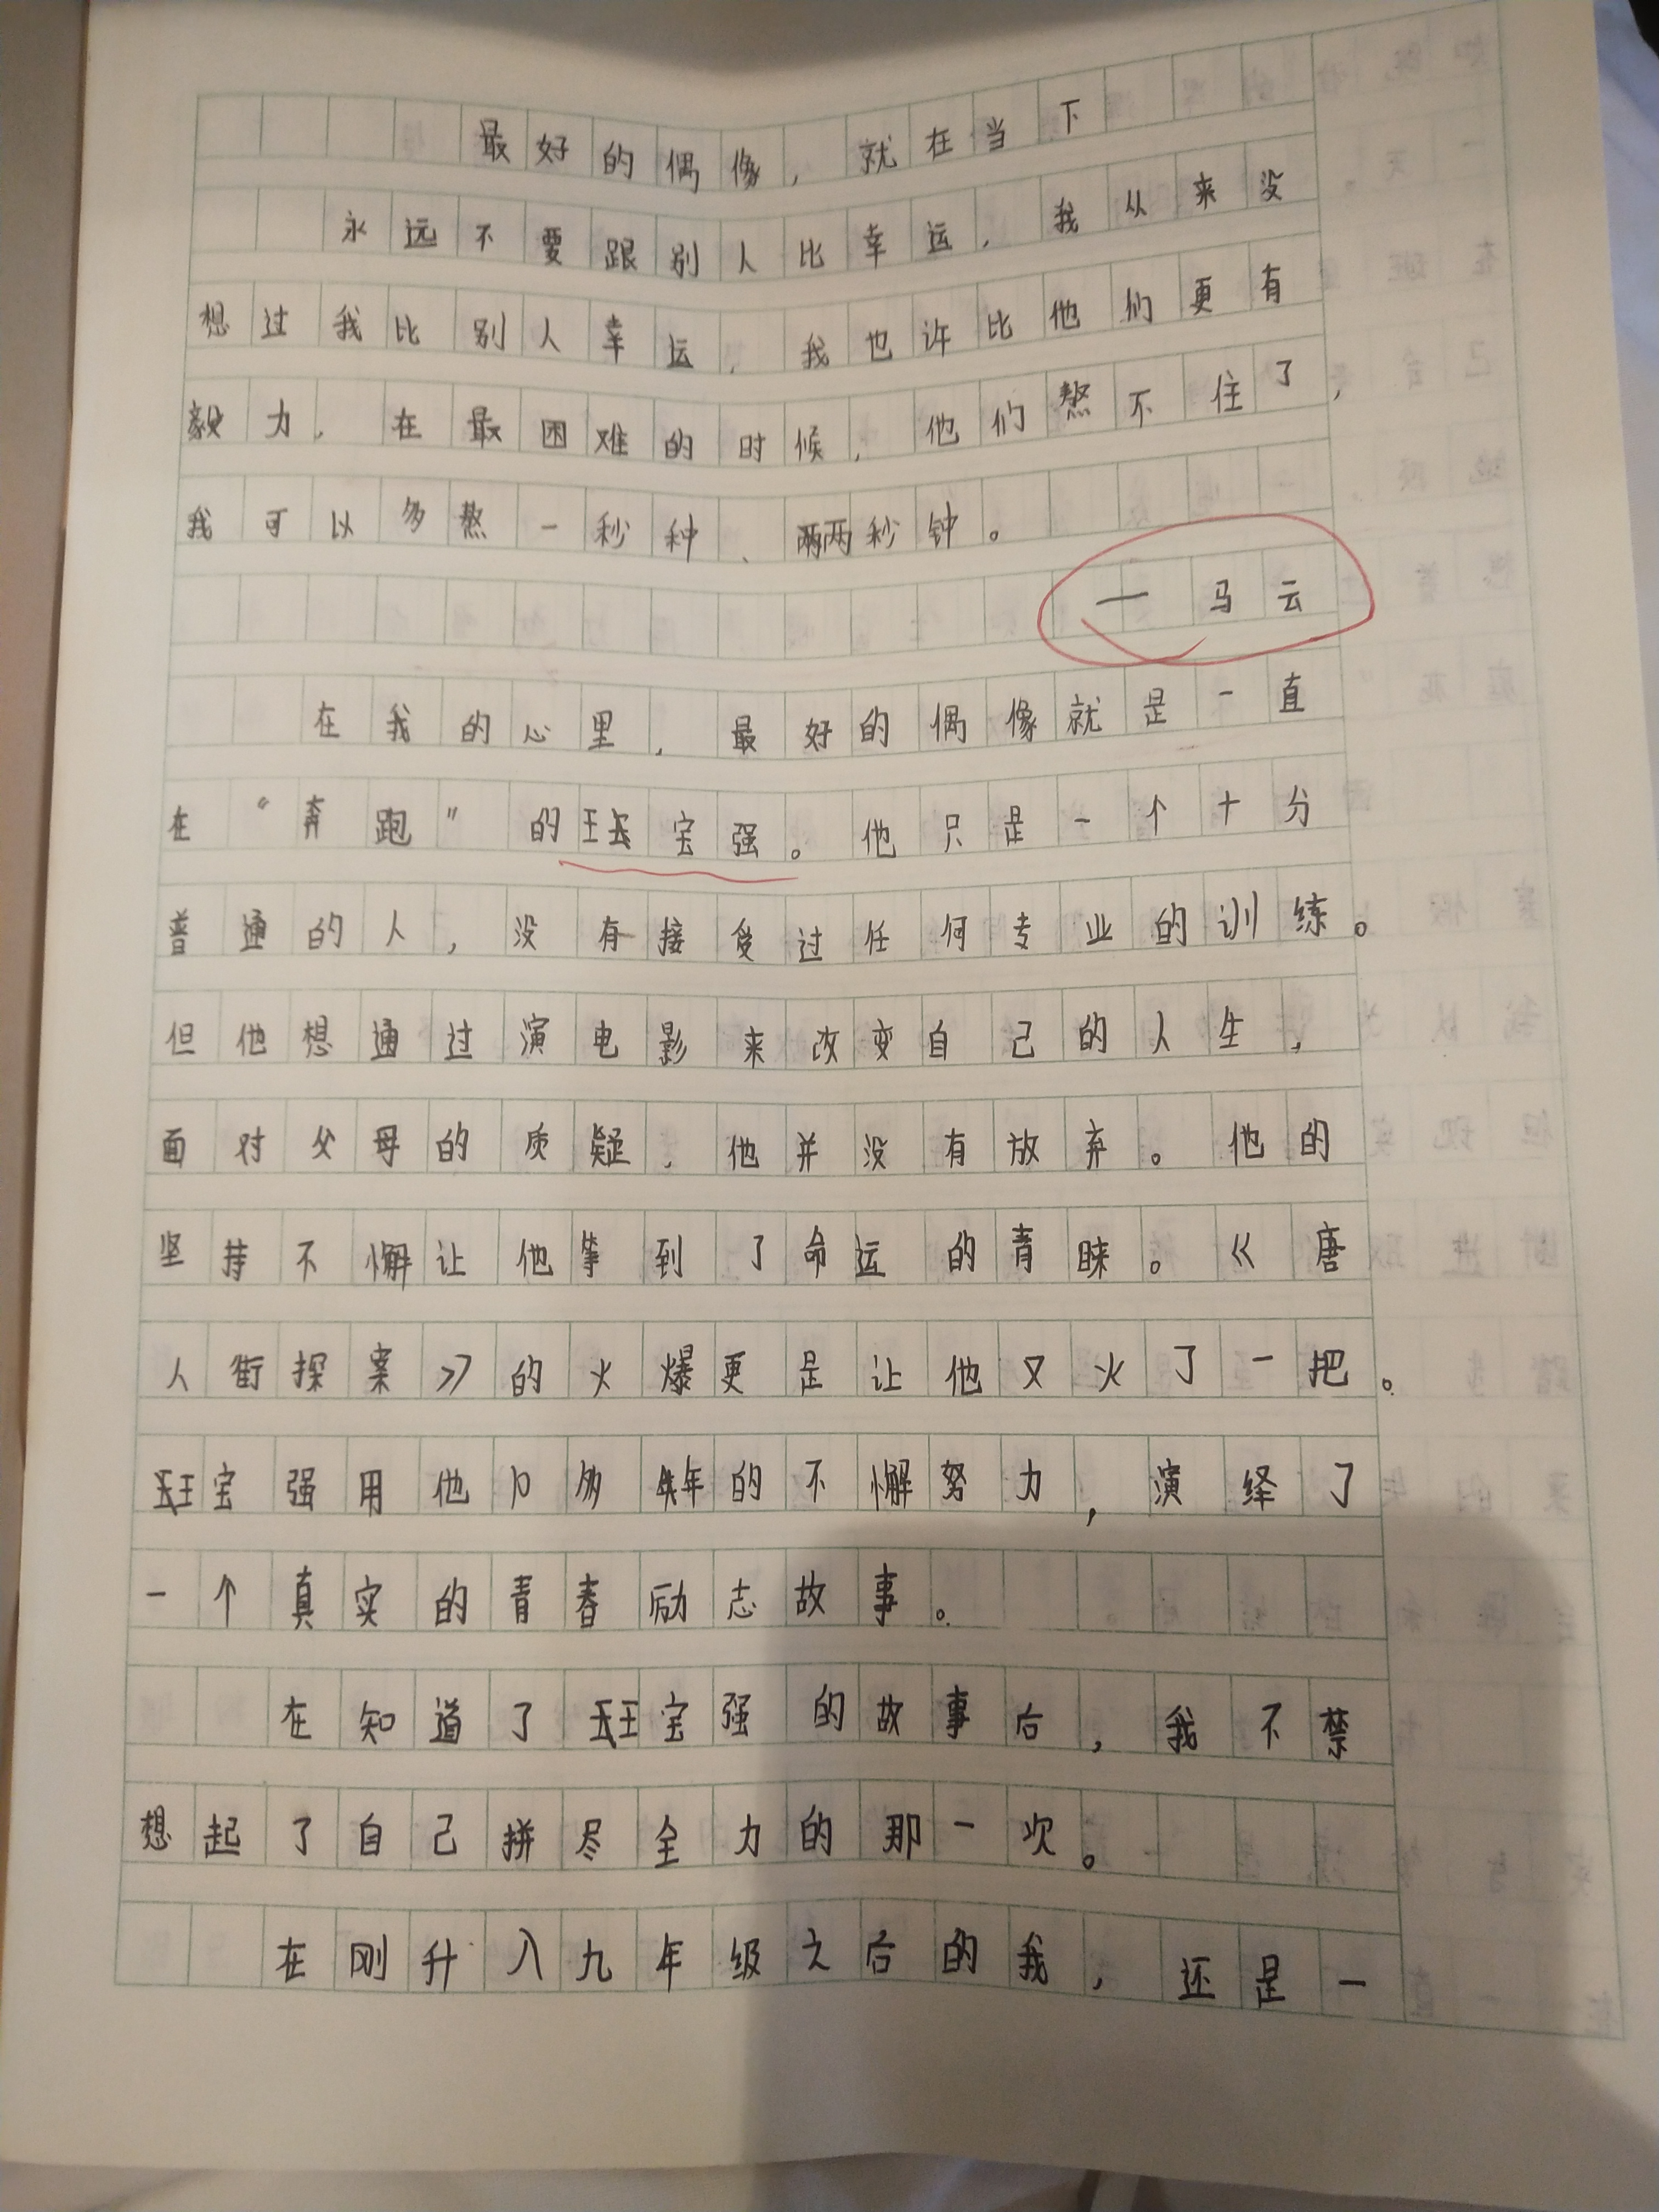 最好的偶像，就在当下
永远不要跟别人比幸运，我从来没
想过我比别人幸运，我也许比他们更有
毅力，在最困难的时候，他们熬不住了，
我可以多熬一秒种、两秒钟。
——马云
在我的心里，最好的偶像就是一直
在“奔跑”的王宝强。他只是一个十分
普通的人，没有接受过任何专业的训练。
但他想通过演电影来改变自己的人生，
面对父母的质疑，他并没有放弃。他的
坚持不懈让他等到了命运的青睐。《唐
人街探案》的火爆更是让他又火了一把。
王宝强用他多年的不懈努力，演绎了
一个真实的青春励志故事。
在知道了王宝强的故事后，我不禁
想起了自己拼尽全力的那一次。
在刚升入九年级之后的我，还是一